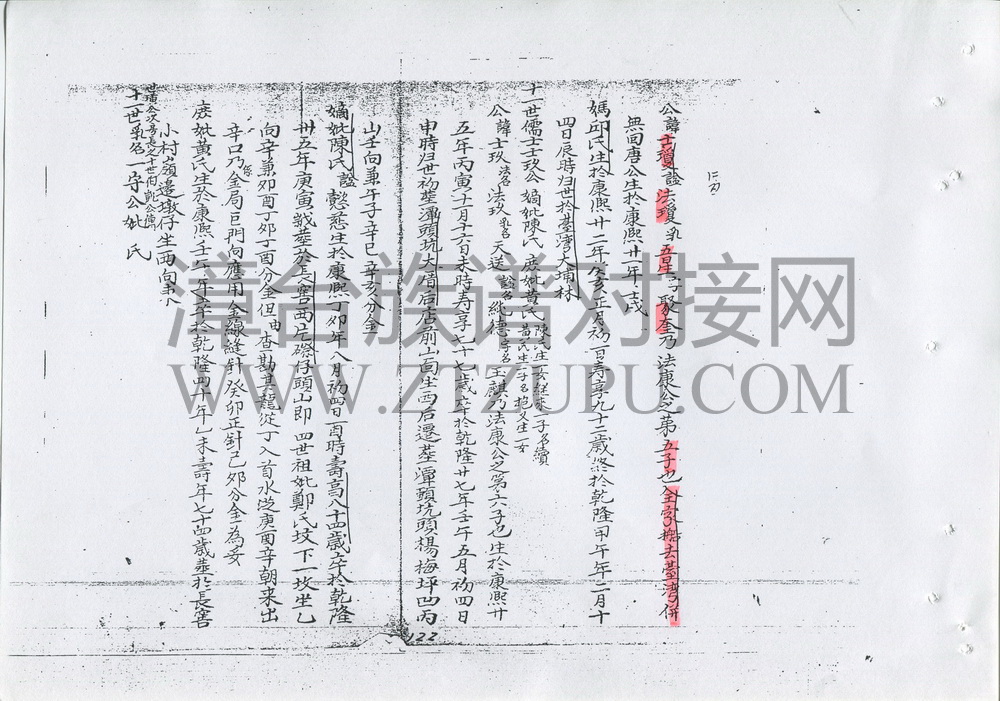 公諱士瓊諡法瓊乳五星号聚奎乃法康公之第五子也全家搬去臺灣併
無回唐公生於康熙廿一年壬戌
媽邱氏生於康熙廿二年癸亥正月初一日壽享九十二歲終於乾隆甲午年二月十
四日辰時归世於臺灣大埔林
十一世儒士士玖公嫡妣陳氏庶妣黄氏
陳氏生一女継來一子名續
黄氏生一子名抱又生一女
公諱士玖法名法玖乳名天送諡名純德字名玉麒乃法康公之第六子也生於康熙廿
五年丙寅十月十六日未時寿享七十七歲卒於乾隆廿七年壬午五月初四日
申時归世初塟潭頭坑大厝后店前山面坐西后遷塟潭頭坑頭楊梅坪凹丙
山壬向兼午子辛巳辛亥分金
嫡妣陳氏諡懿慈生於康熙丁卯年八月初四日酉時壽高八十四歲卒於乾隆
卅五年庚寅歲塟於長窖西片磜仔頭山即四世祖妣鄭氏坟下一坟坐乙
向辛兼卯酉丁卯丁酉分金但查勘其龍從丁入首水从庚酉辛朝来出
辛口乃金局巨門向應用金線縫針癸卯正針己卯分金為妥
庶妣黄氏生於康熙壬午年卒於乾隆四十年乙未壽年七十四歲塟於長窖
小村嶺邊墩仔坐西向
十一世乳名一字公妣 氏
122
漳台族谱对接网
WWW.ZTZUPU.COM